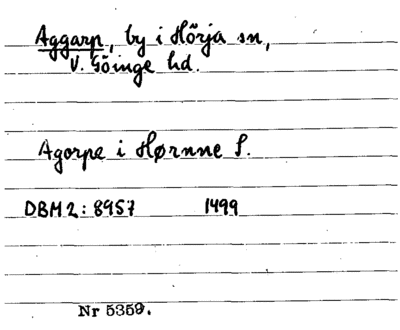 Aggarp, by i Hörja sn,
V. Göinge hd.
Agorpe i Hørnne S.
DBM 2: 8957 1499
Nr 5359.